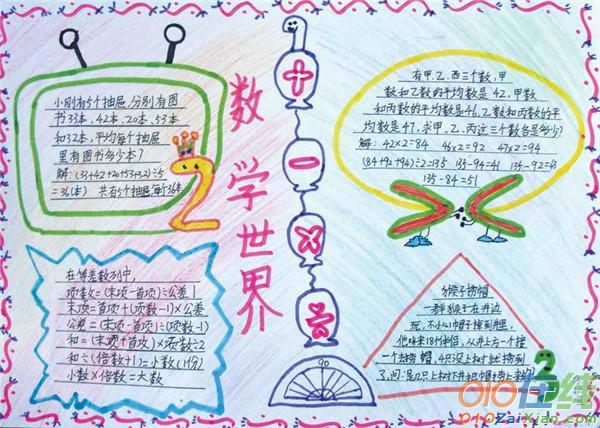 数学世界
小刚有5个抽屉,分别有图
书33本、42本、20本、53本
和32本,平均每个抽屉
里有图书多少本?
解:(33+42+20+53+32)÷5
=36(本) 共有5个抽屉每个36本
2
在等差数列中,
项数=(末项-首项)÷公差+1
末项=首项+(项数-1)×公差
公差=(末项-首项)÷(项数-1)
和=(末项+首项)×项数÷2
和÷(倍数+1)=小数(1份)
小数×倍数=大数
+
-
×
÷
90
有甲、乙、丙三个数,甲
数和乙数的平均数是42,甲数
和丙数的平均数是46,乙数和丙数的平
均数是47,求甲、乙、丙这三个数各是多少?
解:42×2=84 46×2=92 47×2=94
(84+92+94)÷2=135 135-94=41 135-92=43
135-84=51
猴子捞帽
一群猴子在井边
玩,不小心帽子掉到井里,
上方一个接
一个去捞帽,4只没上树就捞到
了,问:是几只上树下井把帽子捞上来的?
2
010在线
010ZaiXian.com